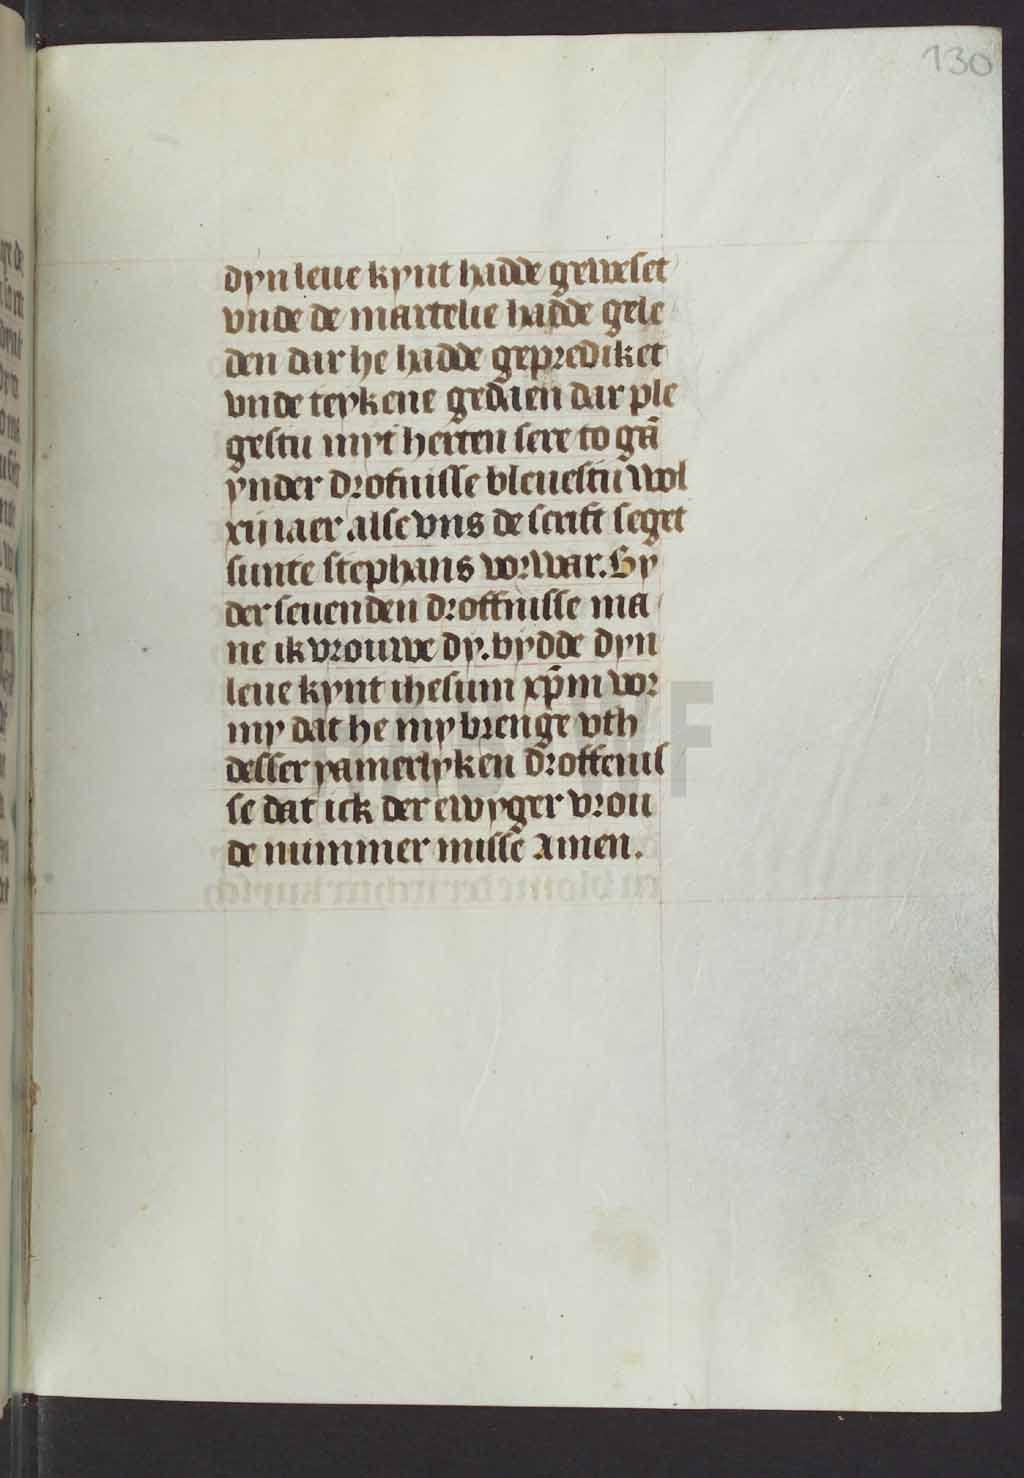 130
dyn leue kynt hadde geweset
vnde de martelie hadde gele
den dar he hadde geprediket
vnde teykene gedaen dar ple
gestu myt herten sere to gā
ynder drofnisse bleuestu wol
xij iaer alse vns de scrift seget
sunte stephans vorwar. By
der seuenden droffnisse ma
ne ik vrouwe dy. bydde dyn
leue kynt ihesum xp̄m vor
my dat he my brenge vth
desser yamerlyken droffenis
se dat ick der ewyger vrou
de nummer misse Amen.